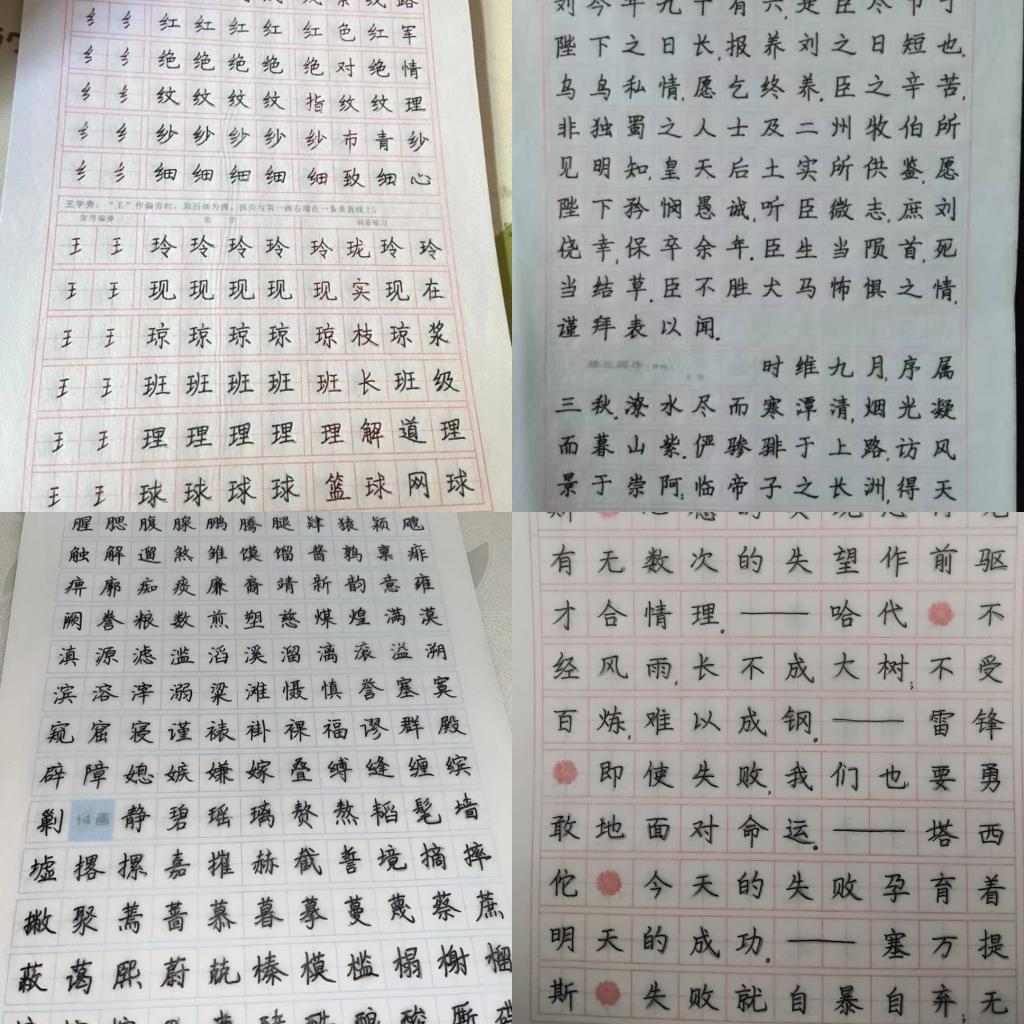 纟 纟 红 红 红 红 红 色 红 军
纟 纟 绝 绝 绝 绝 绝 对 绝 情
纟 纟 纹 纹 纹 纹 指 纹 纹 理
纟 纟 纱 纱 纱 纱 纱 布 青 纱
纟 纟 细 细 细 细 细 致 细 心
王字旁：“王”作偏旁时，第四画为提，提尖与第一画右端在一条垂直线上。
常用偏旁 范字 词语练习
王 王 玲 玲 玲 玲 玲 珑 玲 玲
王 王 现 现 现 现 现 实 现 在
王 王 琼 琼 琼 琼 琼 枝 琼 浆
王 王 班 班 班 班 班 长 班 级
王 王 理 理 理 理 理 解 道 理
王 王 球 球 球 球 篮 球 网 球
刘今年九十有六,是臣尽节于
陛下之日长,报养刘之日短也.
乌鸟私情,愿乞终养.臣之辛苦,
非独蜀之人士及二州牧伯所
见明知,皇天后土实所供鉴,愿
陛下矜悯愚诚,听臣微志,庶刘
侥幸,保卒余年.臣生当陨首,死
当结草.臣不胜犬马怖惧之情,
谨拜表以闻.
时维九月,序属
三秋.潦水尽而寒潭清,烟光凝
而暮山紫.俨骖騑于上路,访风
景于崇阿;临帝子之长洲,得天
腥 腮 腹 腺 鹏 腾 腿 肄 猿 颖 飕
触 解 遛 煞 雏 馍 馏 酱 鹑 禀 痱
痹 廓 痴 痰 廉 裔 靖 新 韵 意 雍
阙 誊 粮 数 煎 塑 慈 煤 煌 满 漠
滇 源 滤 滥 滔 溪 溜 漓 滚 溢 溯
滨 溶 滓 溺 粱 滩 慑 慎 誉 塞 寞
窥 窟 寝 谨 裱 褂 裸 福 谬 群 殿
辟 障 媳 嫉 嫌 嫁 叠 缚 缝 缠 缤
剿 14画 静 碧 瑶 璃 赘 熬 韬 髦 墙
墟 撂 摞 嘉 摧 赫 截 誓 境 摘 摔
撇 聚 蔫 蔷 慕 暮 摹 蔓 蔑 蔡 蔗
蔽 蔼 熙 蔚 兢 榛 模 槛 榻 榭 榴
有无数次的失望作前驱
才合情理。——哈代 不
经风雨,长不成大树;不受
百炼,难以成钢。——雷锋
即使失败,我们也要勇
敢地面对命运。——塔西
佗 今天的失败孕育着
明天的成功。——塞万提
斯 失败就自暴自弃;无